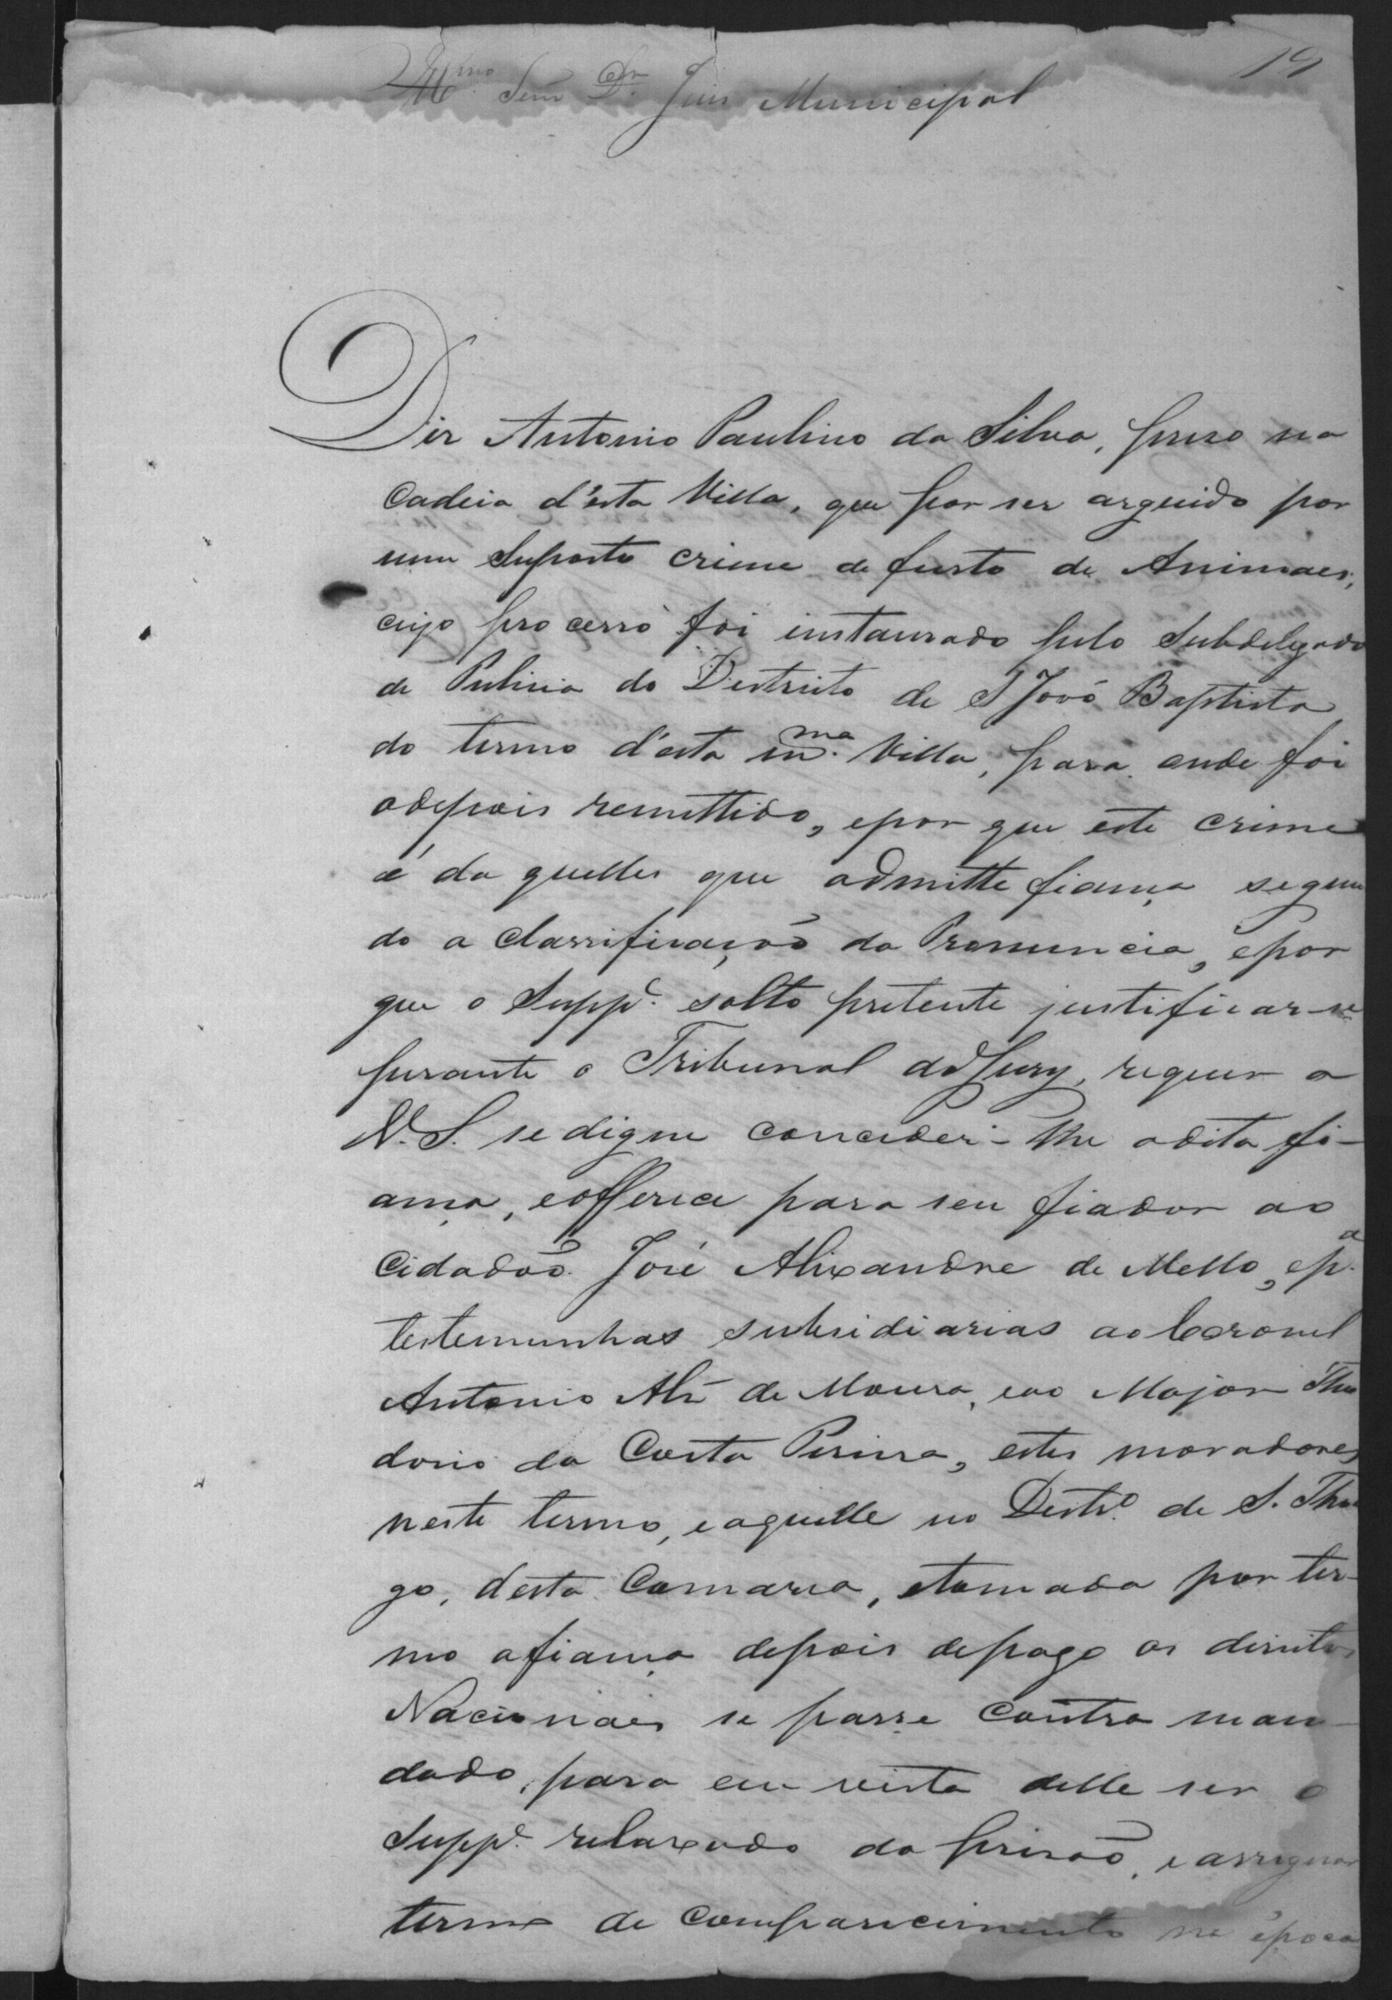 19
Ill.mo Senr. Dr. Juis Municipal
Diz Antonio Paulino da Silva, preso na
Cadeia d'esta Villa, que por ser arguido por
um suposto crime de furto de Animaes,
cujo processo foi instaurado pelo Subdelegado
de Pulicia do Destricto de S João Baptista
do termo d'esta m.ma Villa, para onde foi
odepois remettido, epor que este crime
é da quelles que admitte fiança segun
do a classificação da Pronuncia, epor
que o Supp.e solto pretente justificar-se
perante o Tribunal do Jury, requer a
V. S. se digne conceder-lhe adita fi-
ança, eofferece para seu fiador ao
Cidadão José Alixandre de Mello, ep.a
testemunhas subsidiarias ao Coronel
Antonio Alz de Moura, eao Major The
dorio da Costa Pereira, estes moradores
neste termo, eaquelle no Destr.o de S. Thia
go, desta Comarca, etomada por ter-
mo afiança depois depago os direitos
Nacionaes se passe contra man-
dado, para em vista delle ser o
Supp.e relaxado da prisão, e assignar
termo de comparecimento na época